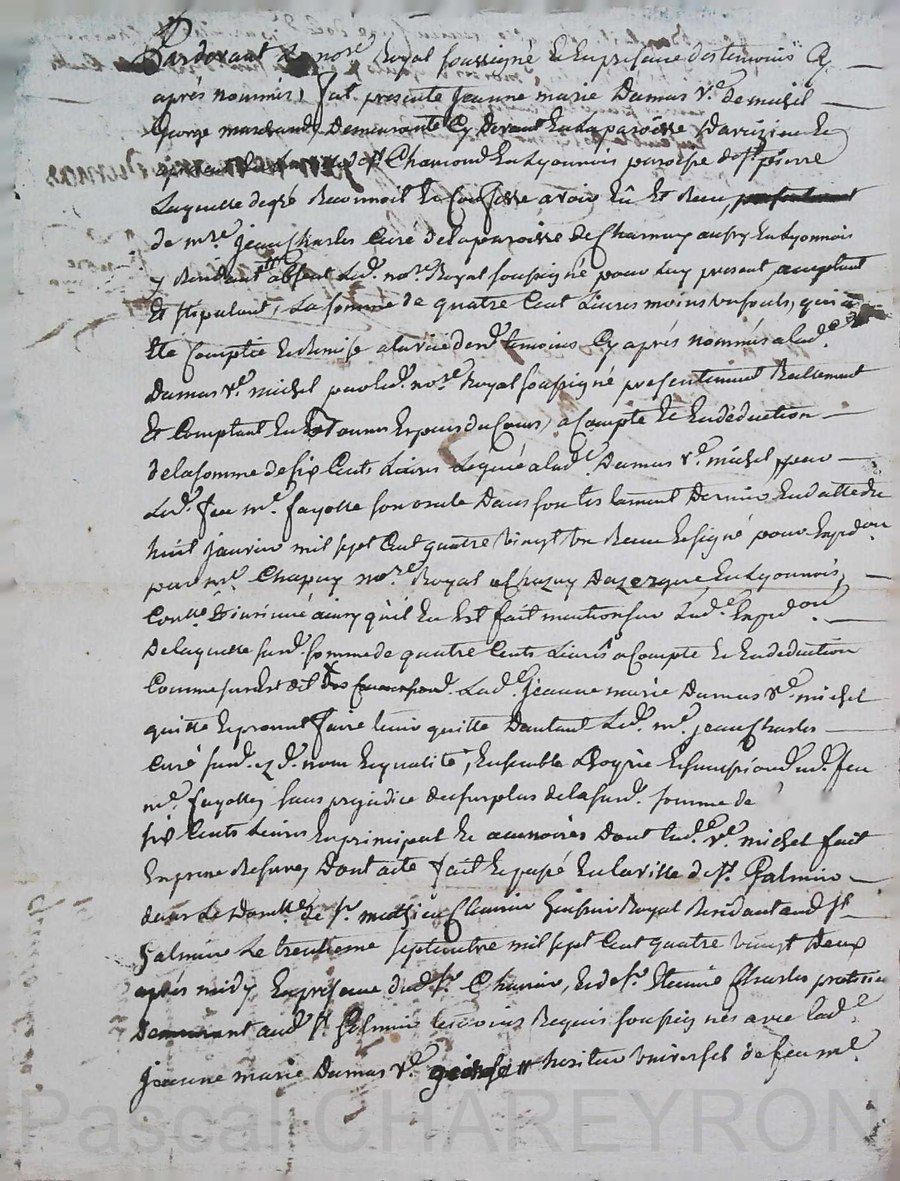 Pardevant le no.re Royal soussigné et en presence des temoins Cy
après nommés, fut presente jeanne marie Dumas v.e de michel
George marchand Demeurante Cy devant en la paroisse et
a présent St Chamond en Lyonnois paroisse de St pierre
Laquelle de gré Reconnoit et Confesse avoir Eû et Recu,
de m.re jean Charles Curé de la paroisse de Charnay aussy en Lyonnois
y Residant absent Led. no.re Royal soussigné pour luy present acceptant
et stipulant, La somme de quatre Cent Livres moins un sout, qui a
Eté Comptée et Remise a la vue de nous d. temoins Cy après nommés a lad.e
Dumas v.e michel par led. no.re Royal soussigné presentement Reellement
et Comptant en et au Cours, a Compte et En déduction
de la somme de six Cents Livres Leguée a lad.e Dumas v.e michel par
Led. feu m.e fayolle son oncle Dans son testament Dernier En datte du
huit janvier mil sept Cent quatre vingt un Recu et signé pour Exped.on
par m.e Chapuy no.re Royal a Chazay Dazergue en Lyonnois,
Conttollé et insinué ainsy qu'il En Est fait mention sur Lad.e Exped.on
De laquelle sus d. somme de quatre Cents Livres a Compte et En deduction
Comme sus Est dit Lad.e jeanne marie Dumas v.e michel
quitte et promet faire tenir quitte Dautant Led. m.e jean Charles
Curé sus d. nom et qualité, Ensemble Lhoyrie et succession dud. feu
m.e fayolle, sans prejudice du surplus de la susd. somme de
six Cents Livres En principal et accessoires Dont lad.e v.e michel fait
Expresse Reserve, Dont acte fait et passé En la ville de St Galmier
dans Le Domicile de Sr mathieu Charvin huissier Royal Residant aud. St
Galmier Le trentieme septembre mil sept Cent quatre vingt Deux
après midy En presence dud. Sr Charvin, et de Sr Etienne Charles praticien
Demeurant aud. St Galmier temoins Requis soussignés avec lad.e
jeanne marie Dumas v.e heritier universel de feu m.e
Pascal CHAREYRON